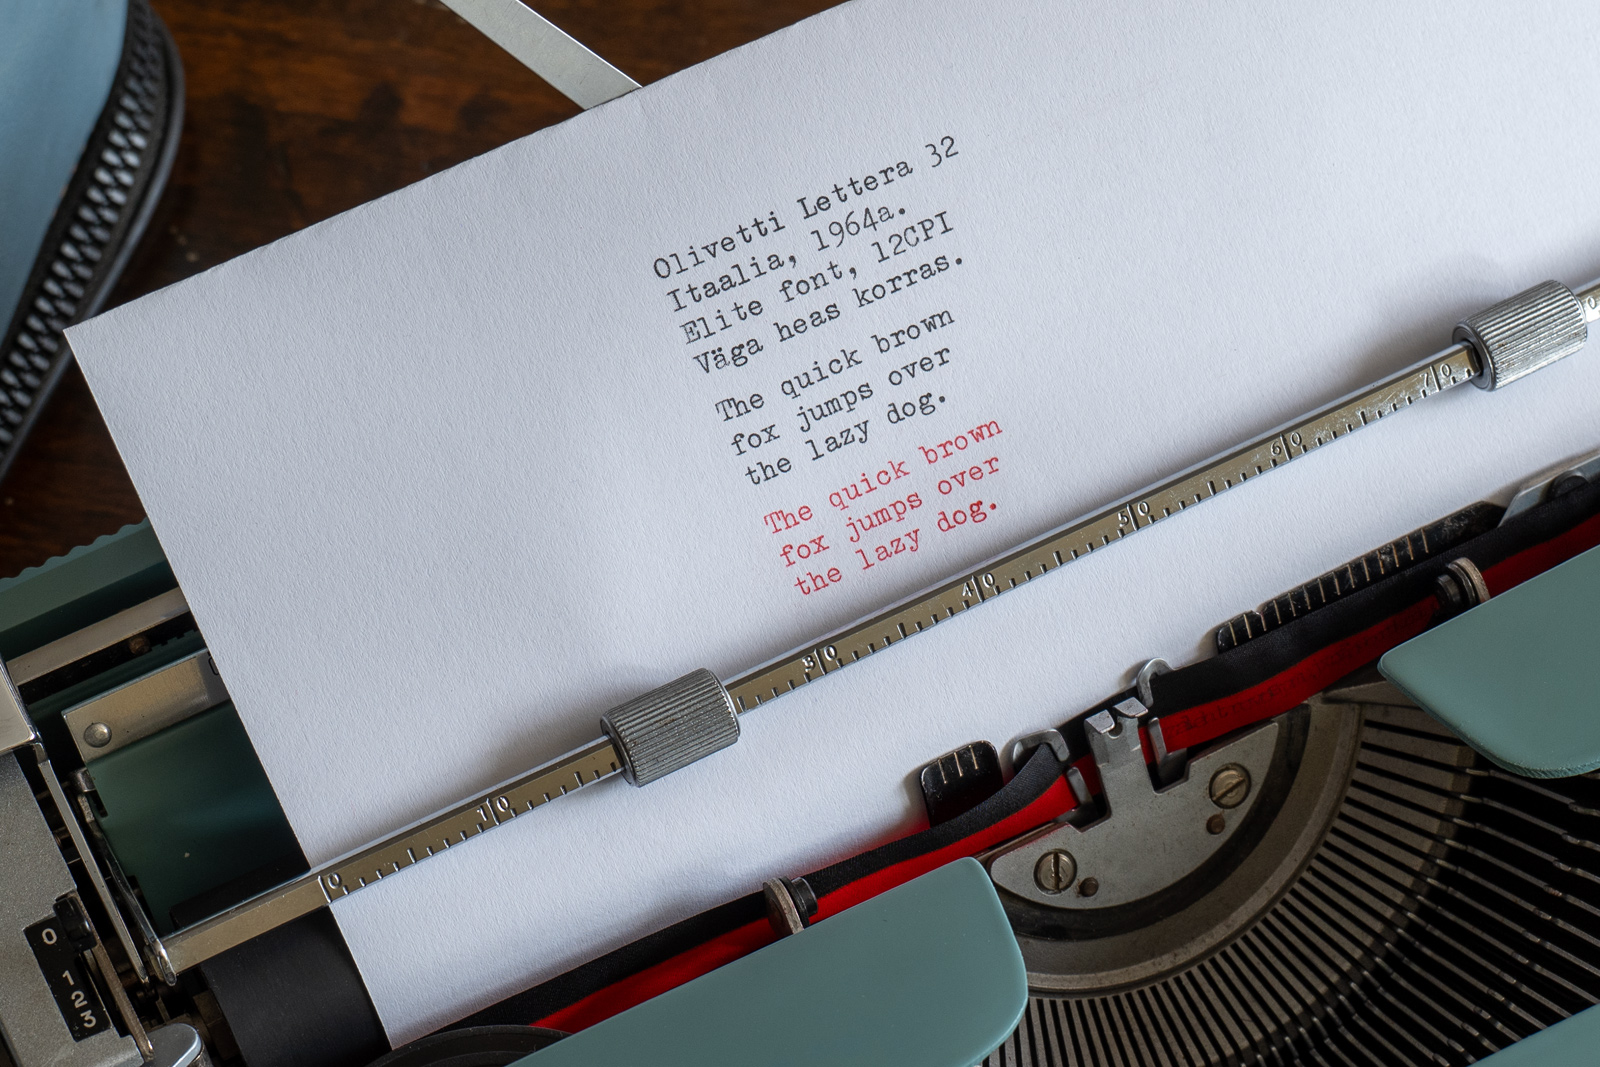 Olivetti Lettera 32
Itaalia, 1964a.
Elite font, 12CPI
Väga heas korras.
The quick brown
fox jumps over
the lazy dog.
The quick brown
fox jumps over
the lazy dog.
0 10 30 40 50 60 70
0
1
2
3